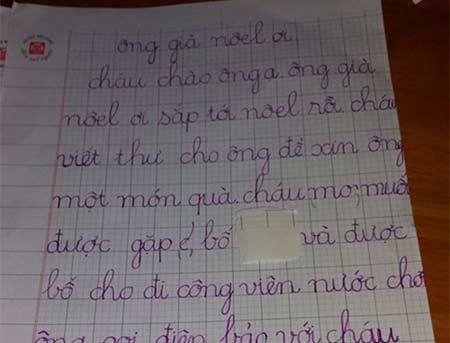 ông già nôel ơi
cháu chào ông ạ ông già
nôel ơi sắp tới nôel rồi cháu
viết thư cho ông để xin ông
một món quà. cháu, mơ, muốn
được gặp bố và được
bố cho đi công viên nước chơi
ông gọi điện bảo với cháu